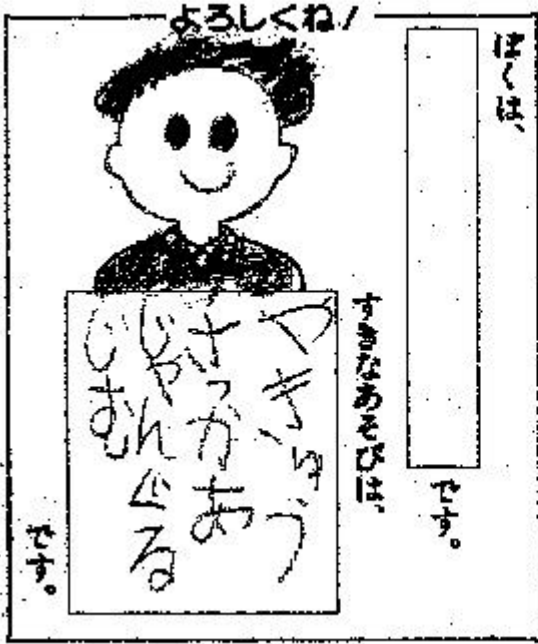 よろしくね!
ぼくは、
です。
すきなあそびは、
やきゅう
さっかあ
じゃんぐる
じむ
です。